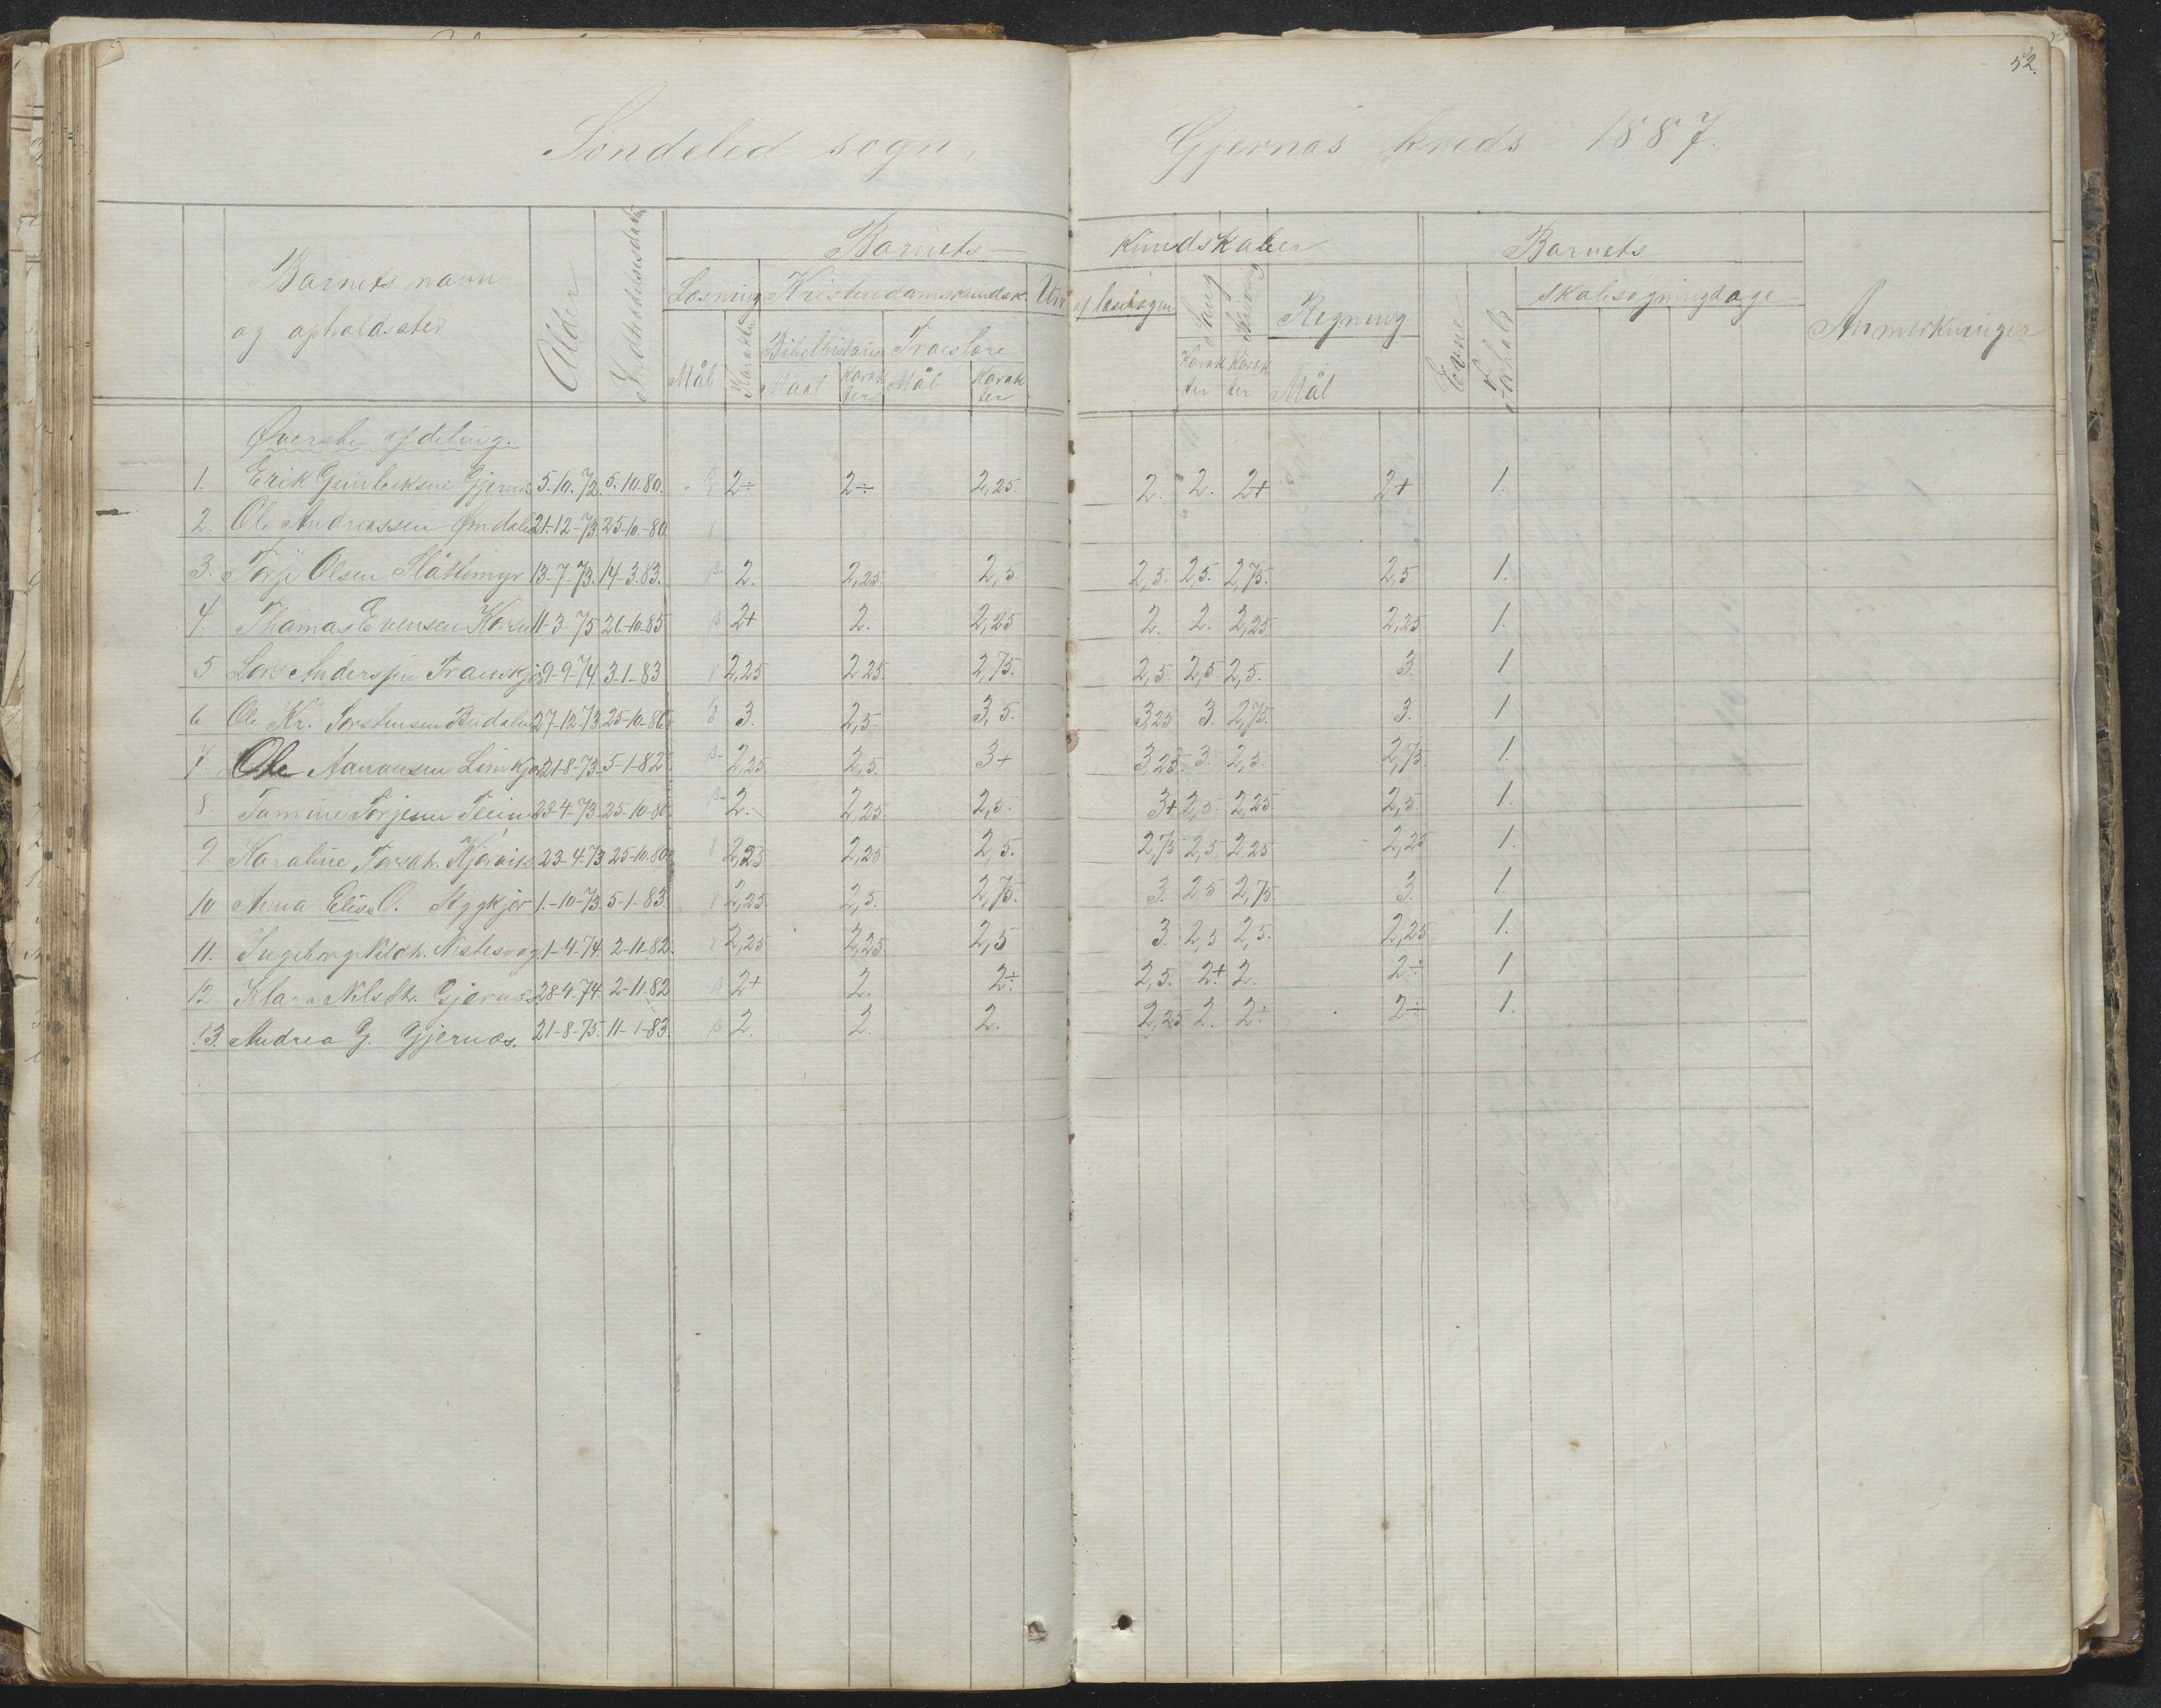 52.
Söndeled sogn,
Gjernæs kreds 1887.
Barnets navn og opholdssted
Alder
Indtrædelsesdato
Barnets
Kundskaber
Barnets
Læsning
Kristendomskundsk.
Udv
af læsebogen
Sang
Skrivning
Regning
Evne
Forhold
Skolesøgningdage
Anmerkninger
Mål
Karakter
Bibelhistorie
Troeslære
Maal
Karakter
Mål
Karakter
Karakter
Karakter
Mål
Øverste afdeling.
1. Erik Gjernes 5.10.72. 5.10.80. 2÷ 2÷ 2,25. 2. 2. 2+ 2+ 1.
2. Ole Andreassen 21-12-73 25-10-80
3. Torje Olsen Slåttemyr 13-7-73. 14-3.83. β- 2. 2,25 2,5. 2,5. 2,5. 2,75. 2,5 1.
4. Thomas Evensen 11-3-75 26-10-85 β 2+ 2. 2,25 2. 2. 2,25 2,25 1.
5 Anderssen 9-9-74 3-1-83 γ 2,25 2 25. 2,75. 2,5. 2,5 2,5. 3. 1
6 Ole Kr. 27-12-73 25-10-80 3. 2,5. 3,5. 3,25 3. 2,75. 3. 1
7 Ole Aanonsen 21-8-73 5-1-82 β- 2,25 2,5. 3+ 3,25. 3. 2,5. 2,75. 1.
8. Tamine 23-4-73 25-10-80 β- 2. 2,25. 2,5. 3+ 2,5. 2,25. 2,5. 1.
9 Karoline 23-4-73 25-10.80 γ 2,25 2,25 2,5. 2,75 2,5, 2,25 2,25 1.
10 Anna Elise O. Stygkjær 1.-10-73 5-1-83. γ 2,25. 2,5. 2,75. 3. 25 2,75. 3. 1.
11. Ingeborg 1-4-74. 2-11-82. γ 2,25 2,25 2,5 3. 2,5 2,5. 2,25 1.
12 Klara Nilsdtr. Gjernæs 28-4-74. 2-11-82 β 2+ 2. 2÷ 2,5. 2+ 2. 2÷ 1
13. Andrea G. Gjernæs. 21-8-75. 11-1-83. β 2. 2. 2. 2,25 2. 2÷ 2÷ 1.